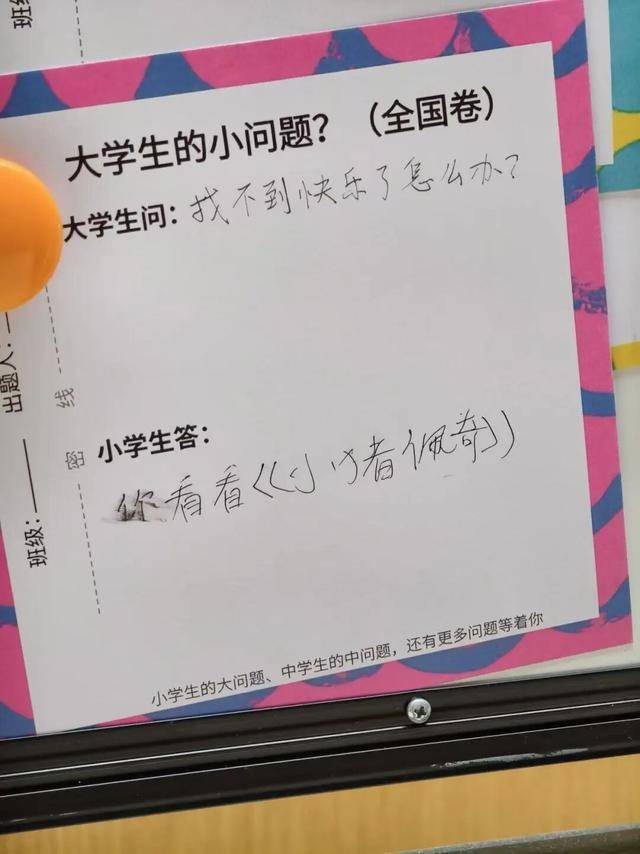 班级
大学生的小问题？（全国卷）
大学生问：找不到快乐了怎么办？
小学生答：
你看看《小猪佩奇》
小学生的大问题、中学生的中问题，还有更多问题等着你
出题人：
线
密
班级：